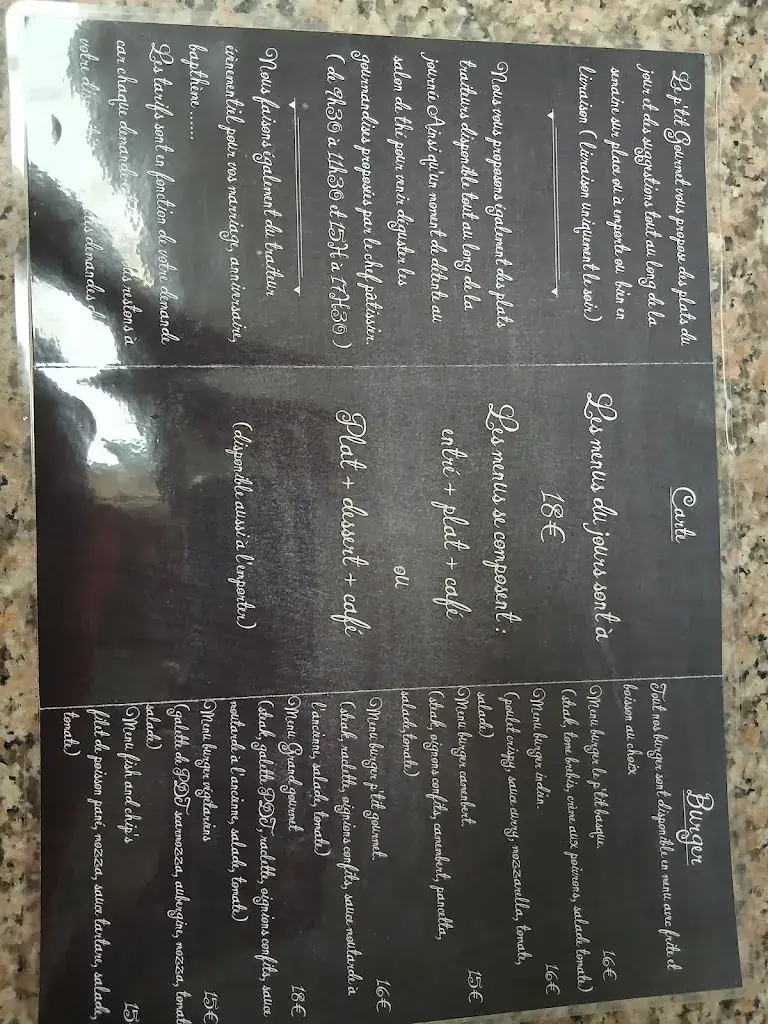 Le p'tit Gourmet vous propose des plats du
jour et des suggestions tout au long de la
semaine sur place ou à emporte ou bien en
livraison (livraison uniquement le soir)
Nous vous proposons également des plats
traiteurs disponible tout au long de la
journée Ainsi qu'un moment de détente au
salon de thé pour venir déguster les
gourmandises proposées par le chef pâtissier.
(de 9h30 à 11h30 et 15H à 17H30)
Nous faisons également du traiteur
évènementiel pour vos marriage, anniversaire,
bapthème ......
Les tarifs sont en fonction de votre demande
car chaque demande restons à
votre demandes
Carte
Les menus du jours sont à
18€
Les menus se composent :
entré + plat + café
ou
Plat + dessert + café
(disponible aussi à l'emporter)
Burger
Tout nos burger sont disponible en menu avec frite et
boisson au choix
Menu burger le p'tit basque. 16€
(steak, tome brebis, crème aux poivrons, salade tomate)
Menu burger indien. 16€
(poulet crispy, sauce curry, mozzarella, tomate,
salade)
Menu burger camenbert. 15€
(steak, oignons confits, camembert, pancetta,
salade, tomate)
Menu burger p'tit gourmet. 16€
(steak, raclette, oignions confits, sauce moutarde à
l'ancienne, salade, tomate)
Menu Grand gourmet 18€
(steak, galette PDT, raclette, oignions confits, sauce
moutarde à l'ancienne, salade, tomate)
Menu burger végétariens 15€
(galette de PDT scarmozza, aubergine, mozza, tomat
salade)
Menu fish and chip's 15
filet de poisson pané, mozza, sauce tartare, salade,
tomate)